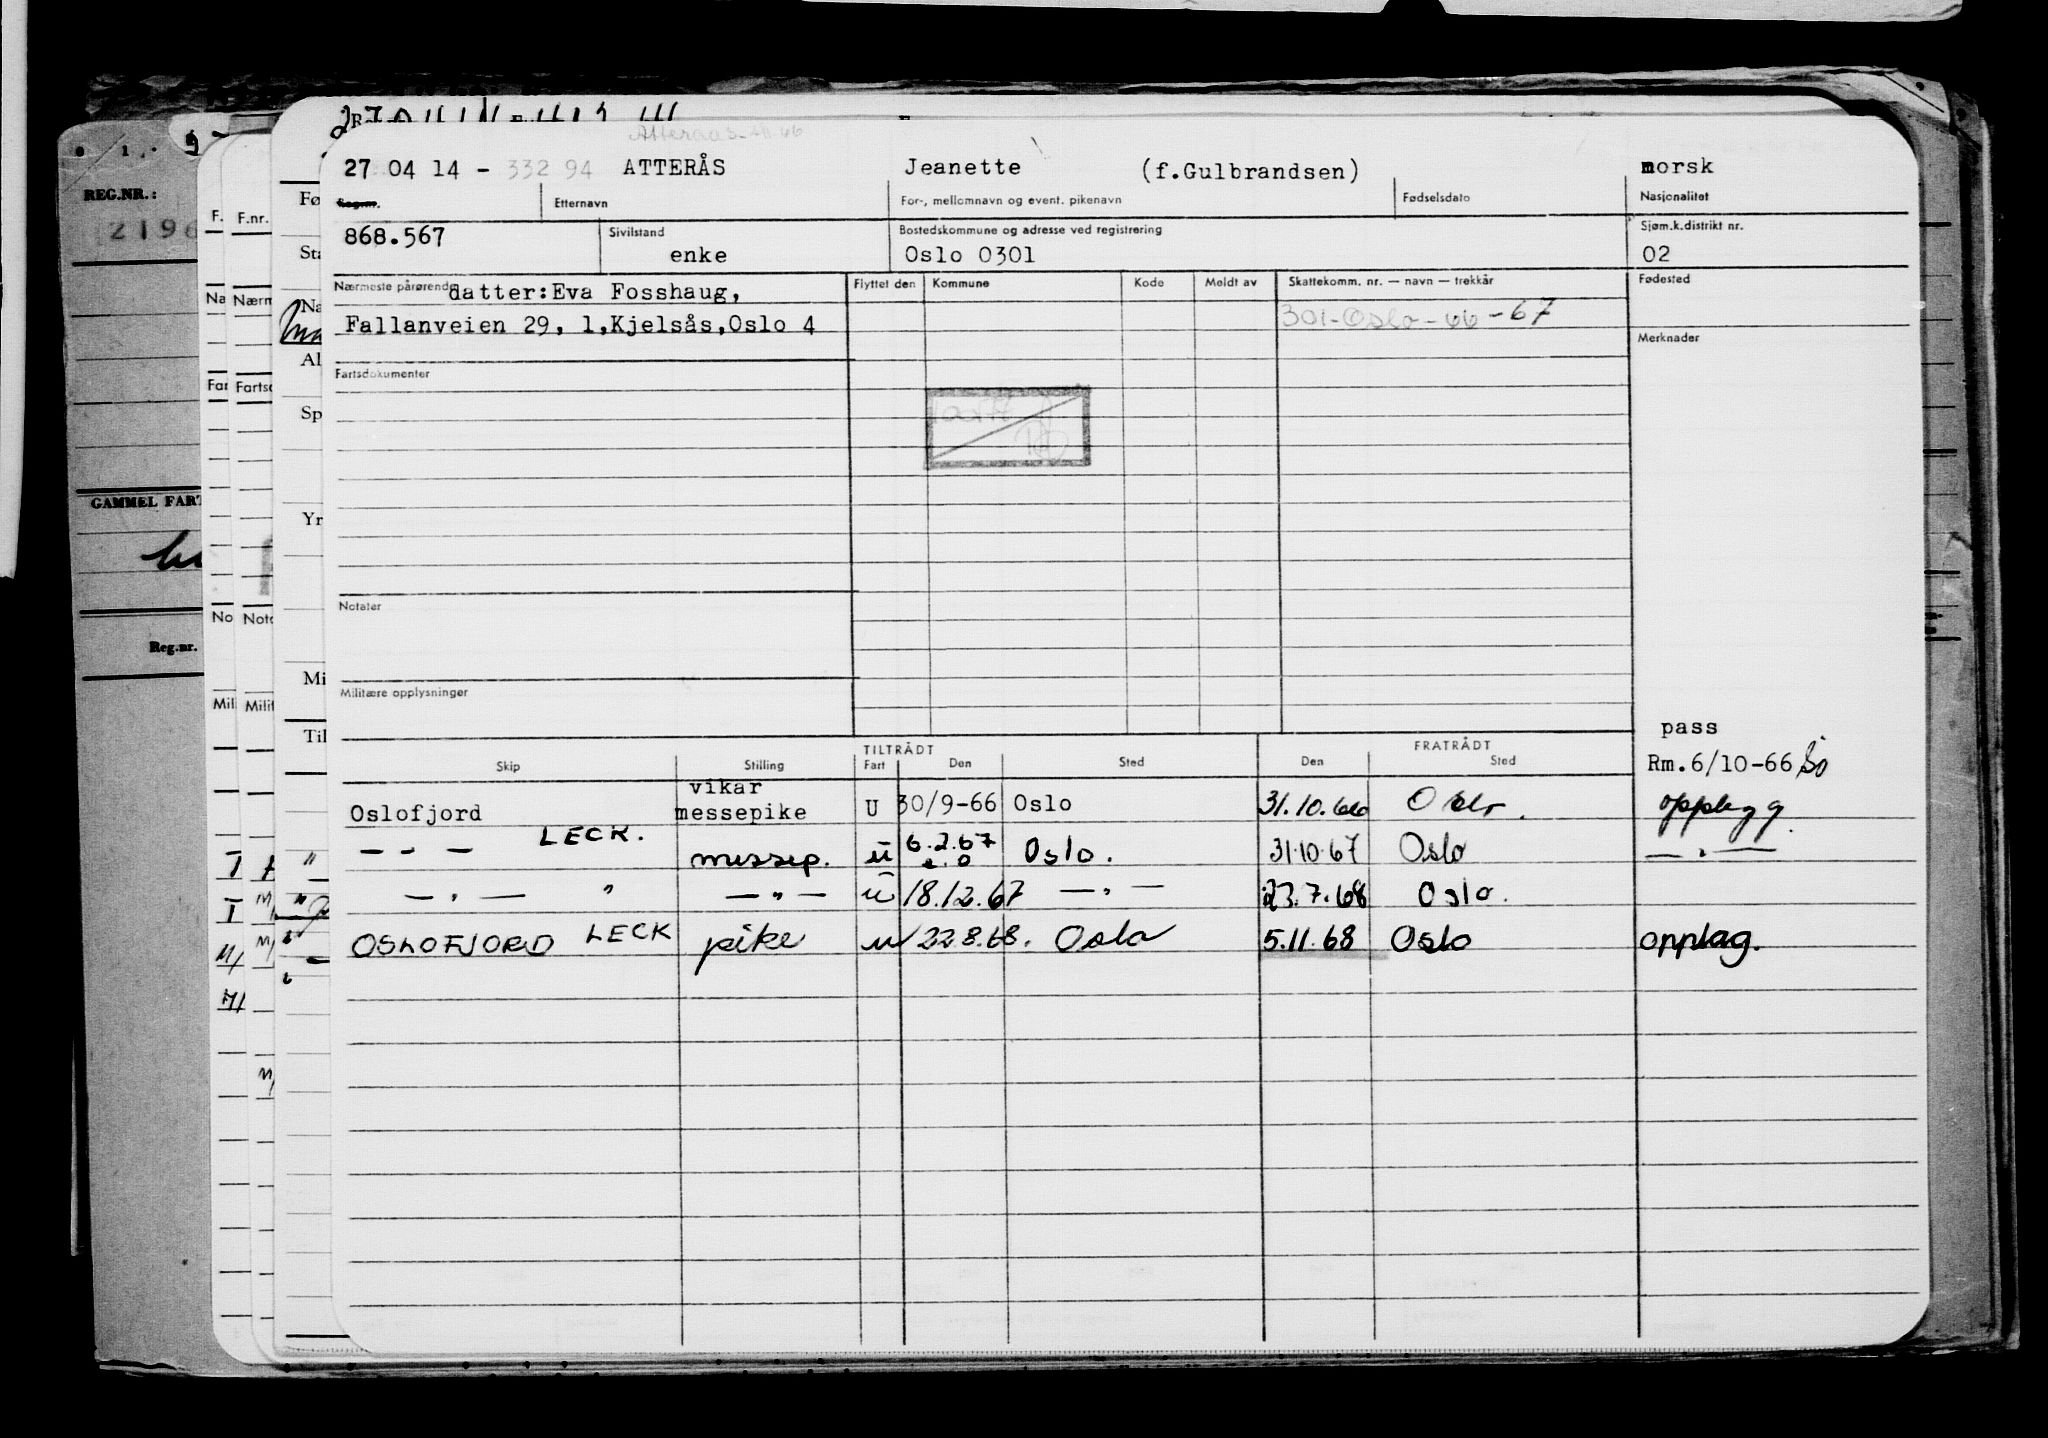 27 04 14 - 332 94 ATTERÅS Jeanette (f.Gulbrandsen) norsk
Regnr. Etternavn For-, mellomnavn og event. pikenavn Fødselsdato Nasjonalitet
868.567 Sivilstand Bostedskommune og adresse ved registrering Sjøm.k.distrikt nr.
enke Oslo 0301 02
Nærmeste pårørende datter:Eva Fosshaug, Flyttet den Kommune Kode Meldt av Skattekomm. nr. — navn — trekkår Fødested
Fallanveien 29, 1,Kjelsås,Oslo 4 301-Oslo-66-67
Merknader
Fartsdokumenter
Notater
Militære opplysninger
pass
TILTRÅDT FRATRÅDT
Skip Stilling Fart Den Sted Den Sted Rm.6/10-66
vikar
Oslofjord messepike U 30/9-66 Oslo 31.10.66 Oslo. opplegg.
— - — LECK. messep. u 6.2.67 Oslo. 31.10.67 Oslo — . —
— . — " — " — u 18.12.67 — . — 23.7.68 Oslo.
OSLOFJORD LECK pike u 22.8.68. Oslo 5.11.68 Oslo opplag.
REG.NR.:
2196
GAMMEL FART
Reg.nr.
F. F.nr. Fø
Sta
Na Nærm Na
Al
Far Fartsd
Sp
Yr
No Nota
Mi
Mil Milit
Til